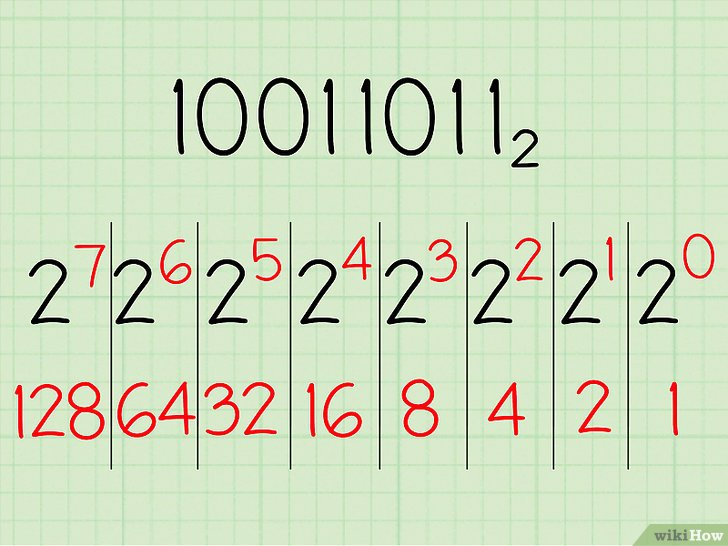 10011011₂
2⁷ 2⁶ 2⁵ 2⁴ 2³ 2² 2¹ 2⁰
128 64 32 16 8 4 2 1
wikiHow